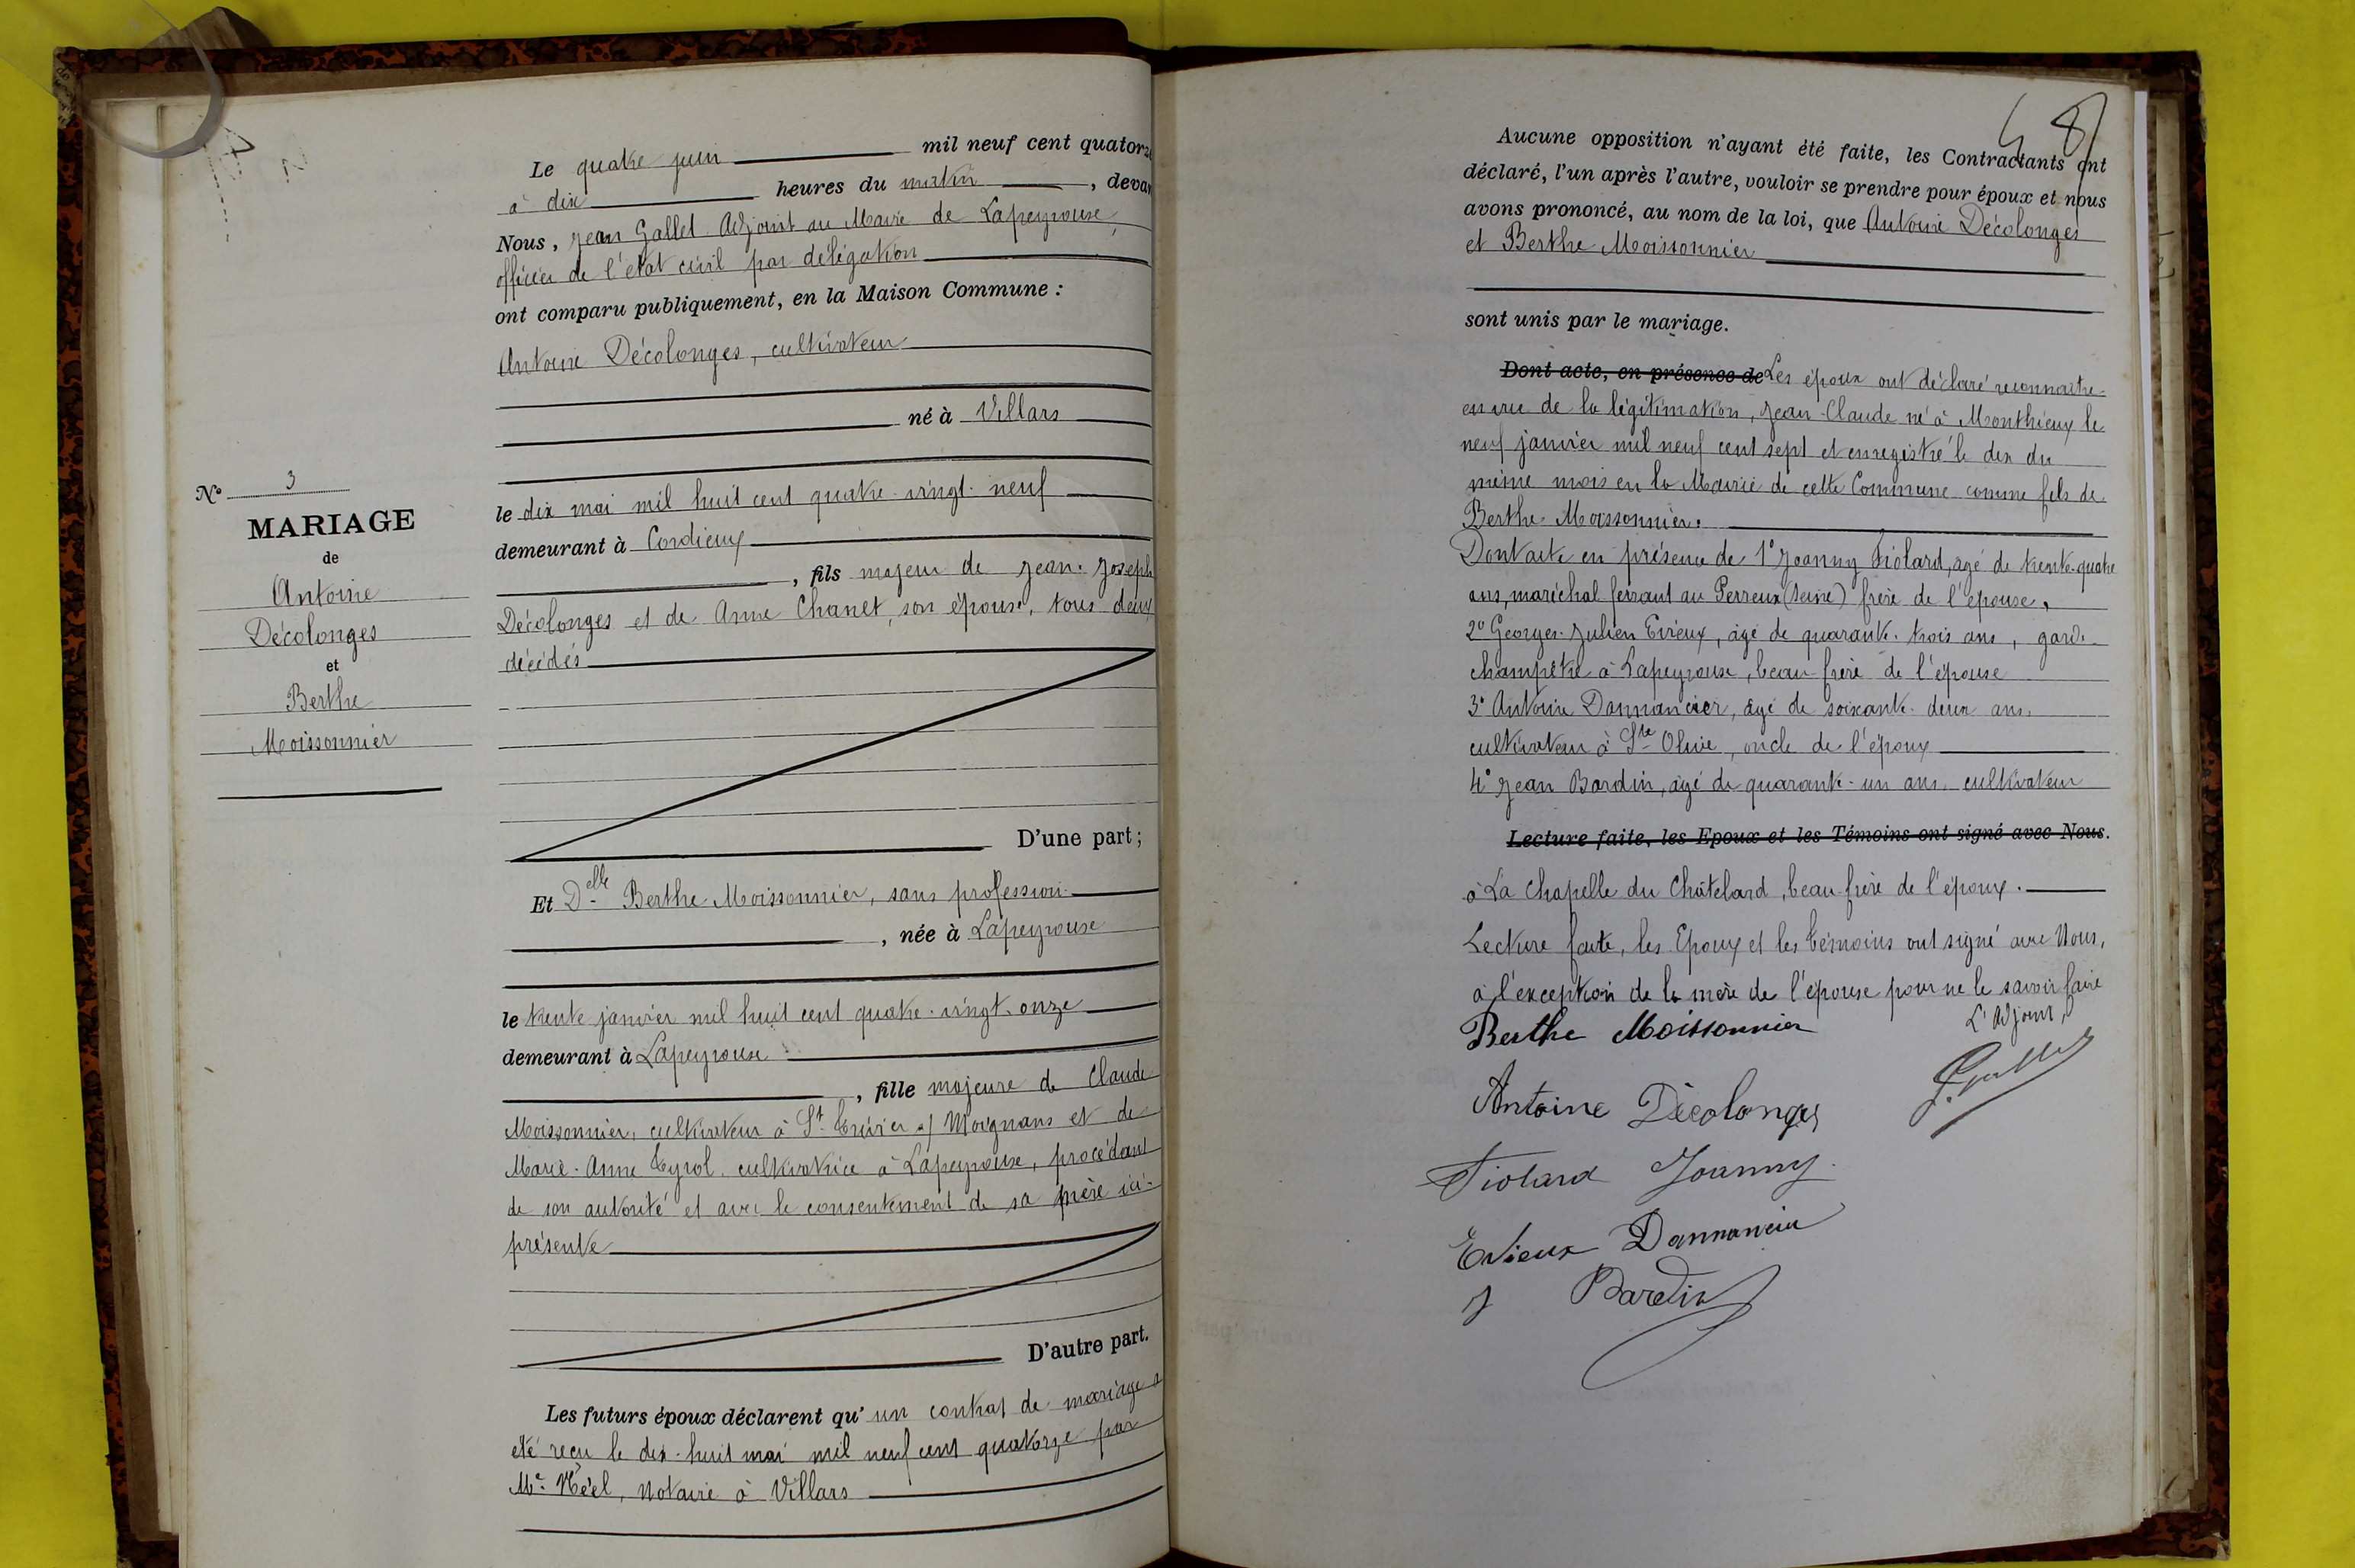 Le quatre juin mil neuf cent quatorze
à dix heures du matin, devan
Nous, Jean Gallet Adjoint au Maire de Lapeyrouse,
officier de l'état civil par délégation
ont comparu publiquement, en la Maison Commune :
Antoine Décolonges, cultivateur
né à Villars
le dix mai mil huit cent quatre-vingt-neuf
demeurant à Cordieux
, fils majeur de Jean-Joseph
Décolonges et de Anne Chanet, son épouse, tous deux
décédés
D'une part ;
Nº 3
MARIAGE
de
Antoine
Décolonges
et
Berthe
Moissonnier
Et Delle Berthe Moissonnier, sans profession
, née à Lapeyrouse
le trente janvier mil huit cent quatre-vingt-onze
demeurant à Lapeyrouse
, fille majeure de Claude
Moissonnier, cultivateur à St Trivier s/ Moignans et de
Marie-Anne Eyrol, cultivatrice à Lapeyrouse, procédant
de son autorité et avec le consentement de sa mère ici
présente
D'autre part.
Les futurs époux déclarent qu'un contrat de mariage a
été reçu le dix-huit mai mil neuf cent quatorze par
Me Néel, notaire à Villars
48
Aucune opposition n'ayant été faite, les Contractants ont
déclaré, l'un après l'autre, vouloir se prendre pour époux et nous
avons prononcé, au nom de la loi, que Antoine Décolonges
et Berthe Moissonnier
sont unis par le mariage.
Dont acte, en présence de Les époux ont déclaré reconnaître
en vue de la légitimation, Jean-Claude né à Monthieux le
neuf janvier mil neuf cent sept et enregistré le dix du
même mois en la Mairie de cette Commune comme fils de
Berthe Moissonnier.
Dont acte en présence de 1º Joanny Fiolard, âgé de trente-quatre
ans, maréchal ferrant au Perreux (Seine) frère de l'épouse,
2º Georges-Julien Evieux, âgé de quarante-trois ans, garde
champêtre à Lapeyrouse, beau-frère de l'épouse
3º Antoine Dannancier, âgé de soixante-deux ans,
cultivateur à Ste Olive, oncle de l'époux
4º Jean Bardin, âgé de quarante-un ans, cultivateur
Lecture faite, les Epoux et les Témoins ont signé avec Nous.
à La Chapelle du Châtelard, beau-frère de l'époux.
Lecture faite, les Epoux et les témoins ont signé avec Nous,
à l'exception de la mère de l'épouse pour ne le savoir faire
Berthe Moissonnier
L'Adjoint,
J. Gallet
Antoine Décolonges
Fiolard Joanny
Evieux Dannancier
J Bardin